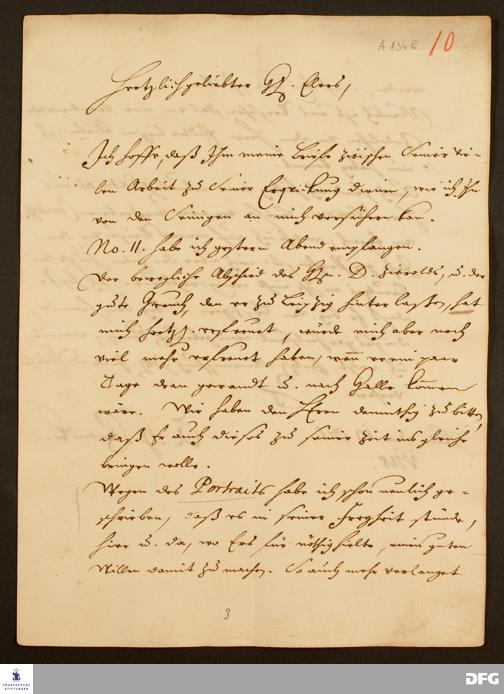 A 134 c 10
Hertzlich geliebter Hr. Elers,
Ich hoffe daß Ihm meine Briefe zwischen Seiner vie-
len Arbeit zu Seiner Erquickung dienen, wie ich Ihn
von den Seinigen an mich versichern kan.
No. 11. habe ich gestern Abend empfangen.
Der bewegliche Abschied des Hn. D. Herolds, u. der
gute Geruch, den er zu Leipzig hinterlaßen, hat
mich hertzl. erfreuet, würd mich aber noch
viel mehr erfreuet haben, wenn er ein paar
Tage dran gewandt u. nach Halle kommen
wäre. Wir haben den Herrn demüthig zu bitten,
daß Er auch dieses zu seiner Zeit ins gleiche
bringen wolle.
Wegen des Portraits habe ich schon neulich ge-
schrieben, daß es in seiner Freyheit stünde,
hier u. da, wo Ers für nöthig hielte, einen guten
Willen damit zu machen. So auch mehr verlanget
3
FRANCKESCHE
STIFTUNGEN
DFG